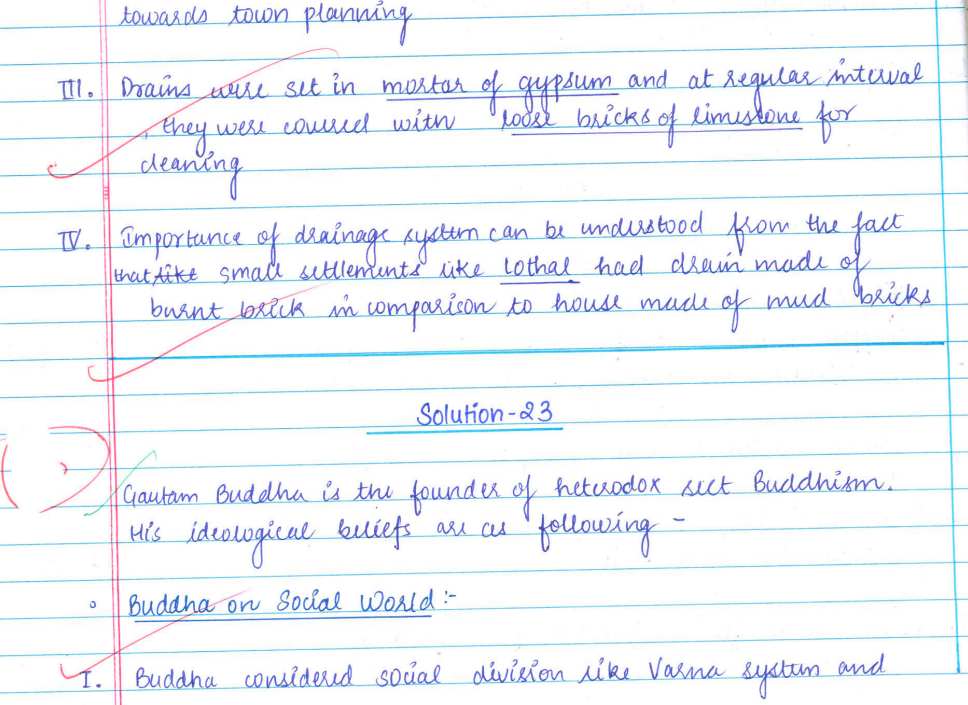 towards town planning
III. Drains were set in mortar of gypsum and at regular interval
, they were covered with loose bricks of limestone for
cleaning
IV. Importance of drainage system can be understood from the fact
that like small settlements like Lothal had drain made of
burnt brick in comparison to house made of mud bricks
Solution-23
Gautam Buddha is the founder of heterodox sect Buddhism.
His ideological beliefs are as following -
Buddha on Social World :-
I. Buddha considered social division like Varna system and